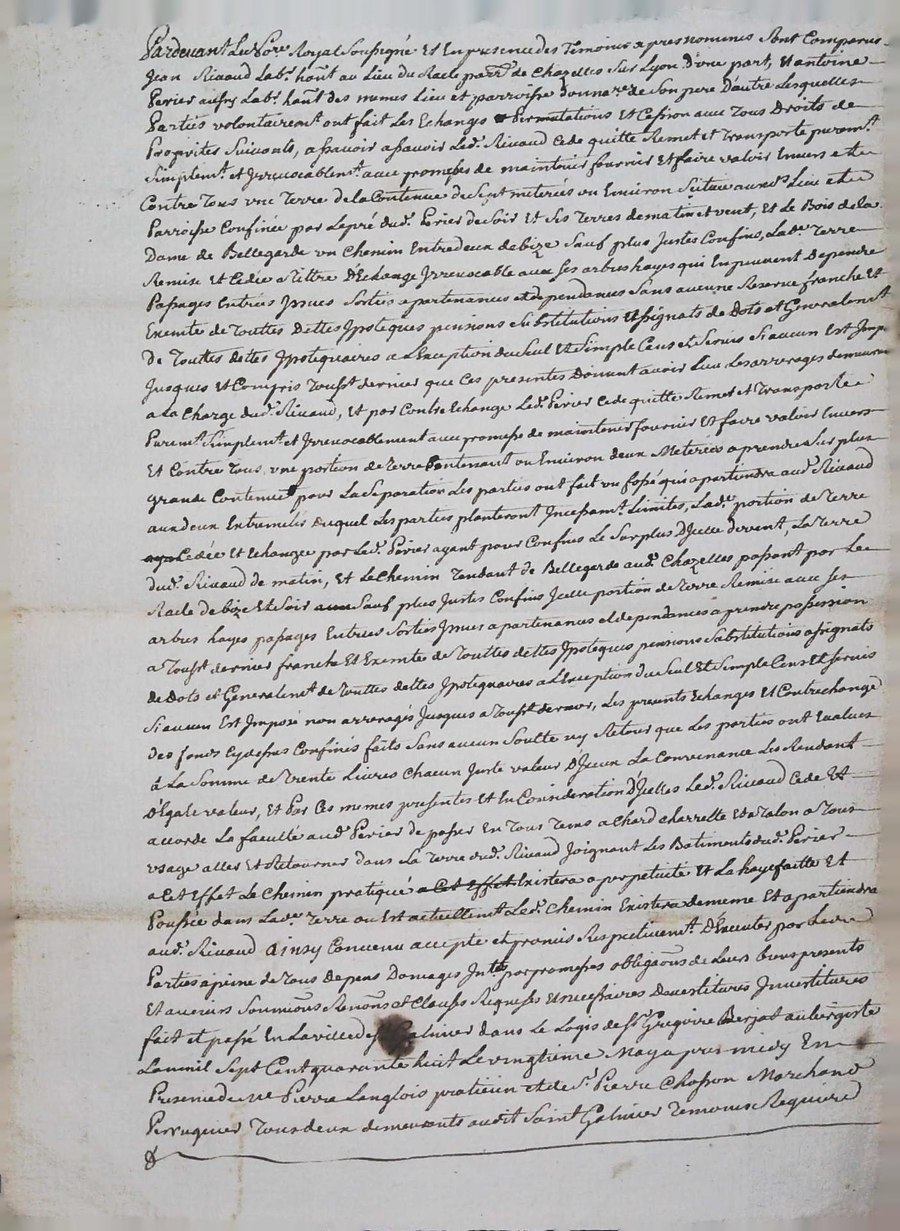 Pardevant Le No.re Royal Soussigné Et En presence des Temoins apres nommes Sont Comparus
Jean Rivaud Lab.r hant au Lieu du Racle parr.e de Chazelles Sur Lyon D'une part, Et antoine
Perier aussy Lab.r hant des memes Lieu et parroisse Donnat.re de Son pere D'autre Lesquelles
Parties volontairem.t ont fait Les Echanges Permutations Et Cession avec Tous Droits de
Proprites Suivants, a sçavoir a sçavoir Led. Rivaud Cede quitte Remet et Transporte purem.t
Simplem.t et Irrevocablem.t avec promesses de maintenir fournir Et faire valoir Envers et
Contre Tous une Terre de la Contenue de Sept meterées ou Environ Scituée auxd.s Lieu et
Parroisse Confinée par Le pré dud. Perier de Soir Et Ses Terres de matin et vent, Et Le Bois de la
Dame de Bellegarde un Chemin Entre deux de bize Sauf plus Justes Confins, Lad.e Terre
Remise Et Cedée a tittre D'Echange Irrevocable avec Ses arbres hayes qui En peuvent dependre
Passages Entrées Issues Sorties apartenances et dependances Sans aucune Reserve franche Et
Exemte de Touttes Dettes Ipoteques pensions Substitutions Assignats de Dots et Generalem.t
De Touttes dettes Ipotequaires a L'Exception du Seul Et Simple Cens et Servis Si aucun Est Imp
Jusques Et Compris Touss.t dernier que Ces presentes Doivent avoir Lieu Les arrerages demeurans
a La Charge dud. Rivaud, Et par Contre Echange Led. Perier Cede quitte Remet et Transporte
Purem.t Simplem.t et Irrevocablement avec promesse de maintenir fournir Et faire valoir Envers
Et Contre Tous, une portion de Terre Contenant ou Environ deux Meterées a prendre Sur plus
grande Contenue pour La Separation Les parties ont fait un fossé qui apartiendra aud. Rivaud
aux deux Extremités duquel Les parties planteront Incessam.t Limites, Lad.e portion de Terre
Cedée Et Echangée par Led. Perier ayant pour Confins Le Surplus D'Icelle de vent, La Terre
dud. Rivaud de matin, Et Le Chemin Tendant de Bellegarde aud. Chazelles passant par Le
Racle de bize Et Soir Sauf plus Justes Confins Icelle portion de Terre Remise avec Ses
arbres hayes passages Entrées Sorties Issues apartenances et dependances a prendre possession
a Touss.t dernier franche Et Exemte de Touttes dettes Ipoteques pensions Substitutions assignats
de Dots et Generalem.t de Touttes dettes Ipotequaires a L'Exception du Seul Et Simple Cens Et Servis
Si aucun Est Imposé non arreragés Jusques a Touss.t dernier, Les presents Echanges Et Contrechange
des fonds Cy dessus Confinés faits Sans aucun Soulte ny Retour que Les parties ont Evalues
à La Somme de Trente Livres Chacun Juste valeur D'Iceux La Convenance Les Rendant
D'Egale valeur, Et Par Ces memes presentes Et En Consideration D'Icelles Led. Rivaud Cede Et
accorde La faculté aud. Perier de passer En Tous Tems a Chard charrette Et a Talon a Tous
usage aller Et Retourner dans La Terre dud. Rivaud Joignant Les Batiments dud. Perier
a Cet Effet Le Chemin pratiqué a Cet Effet Existera a perpetuité Et La haye faitte Et
Poussée dans Lad.e Terre ou Est actuellem.t Led. Chemin Existera de meme Et apartiendra
aud. Rivaud ainsy Convenu accepté et promis Respectivem.t D'Executer par Lesd.
Parties a peine de Tous Depens Domages Int.ts par promesses obligaõns de Leurs biens presents
Et avenirs Soumissions Renoñs et Clauses Requises Et necessaires Devestitures Investitures
fait et passé En La ville de S.t Galmier dans Le Logis de S.r Gregoire Berjat aubergiste
L'an mil Sept Cent quarante huit Le vingtieme May apres midy En
Presence de M.e Pierre Langlois praticien et de S.r Pierre Chasson Marchand
Perruquier Tous deux demeurants audit Saint Galmier Temoins Requis